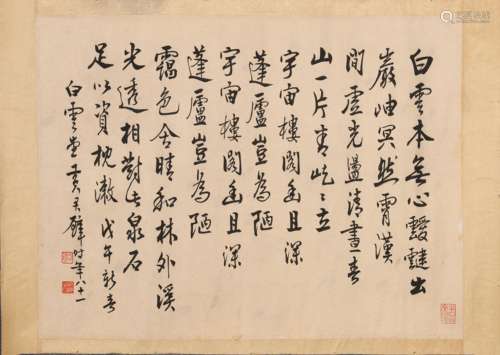 白雲本無心靉靆出
巖岫冥然霄漢
間虛光盪清晝春
山一片青屹々立
宇宙樓閣幽且深
蓬廬豈為陋
宇宙樓閣幽且深
蓬廬豈為陋
靄色含晴和林外溪
光透相對此泉石
足以資枕漱 戊午新春
白雲堂黃君璧時年八十一